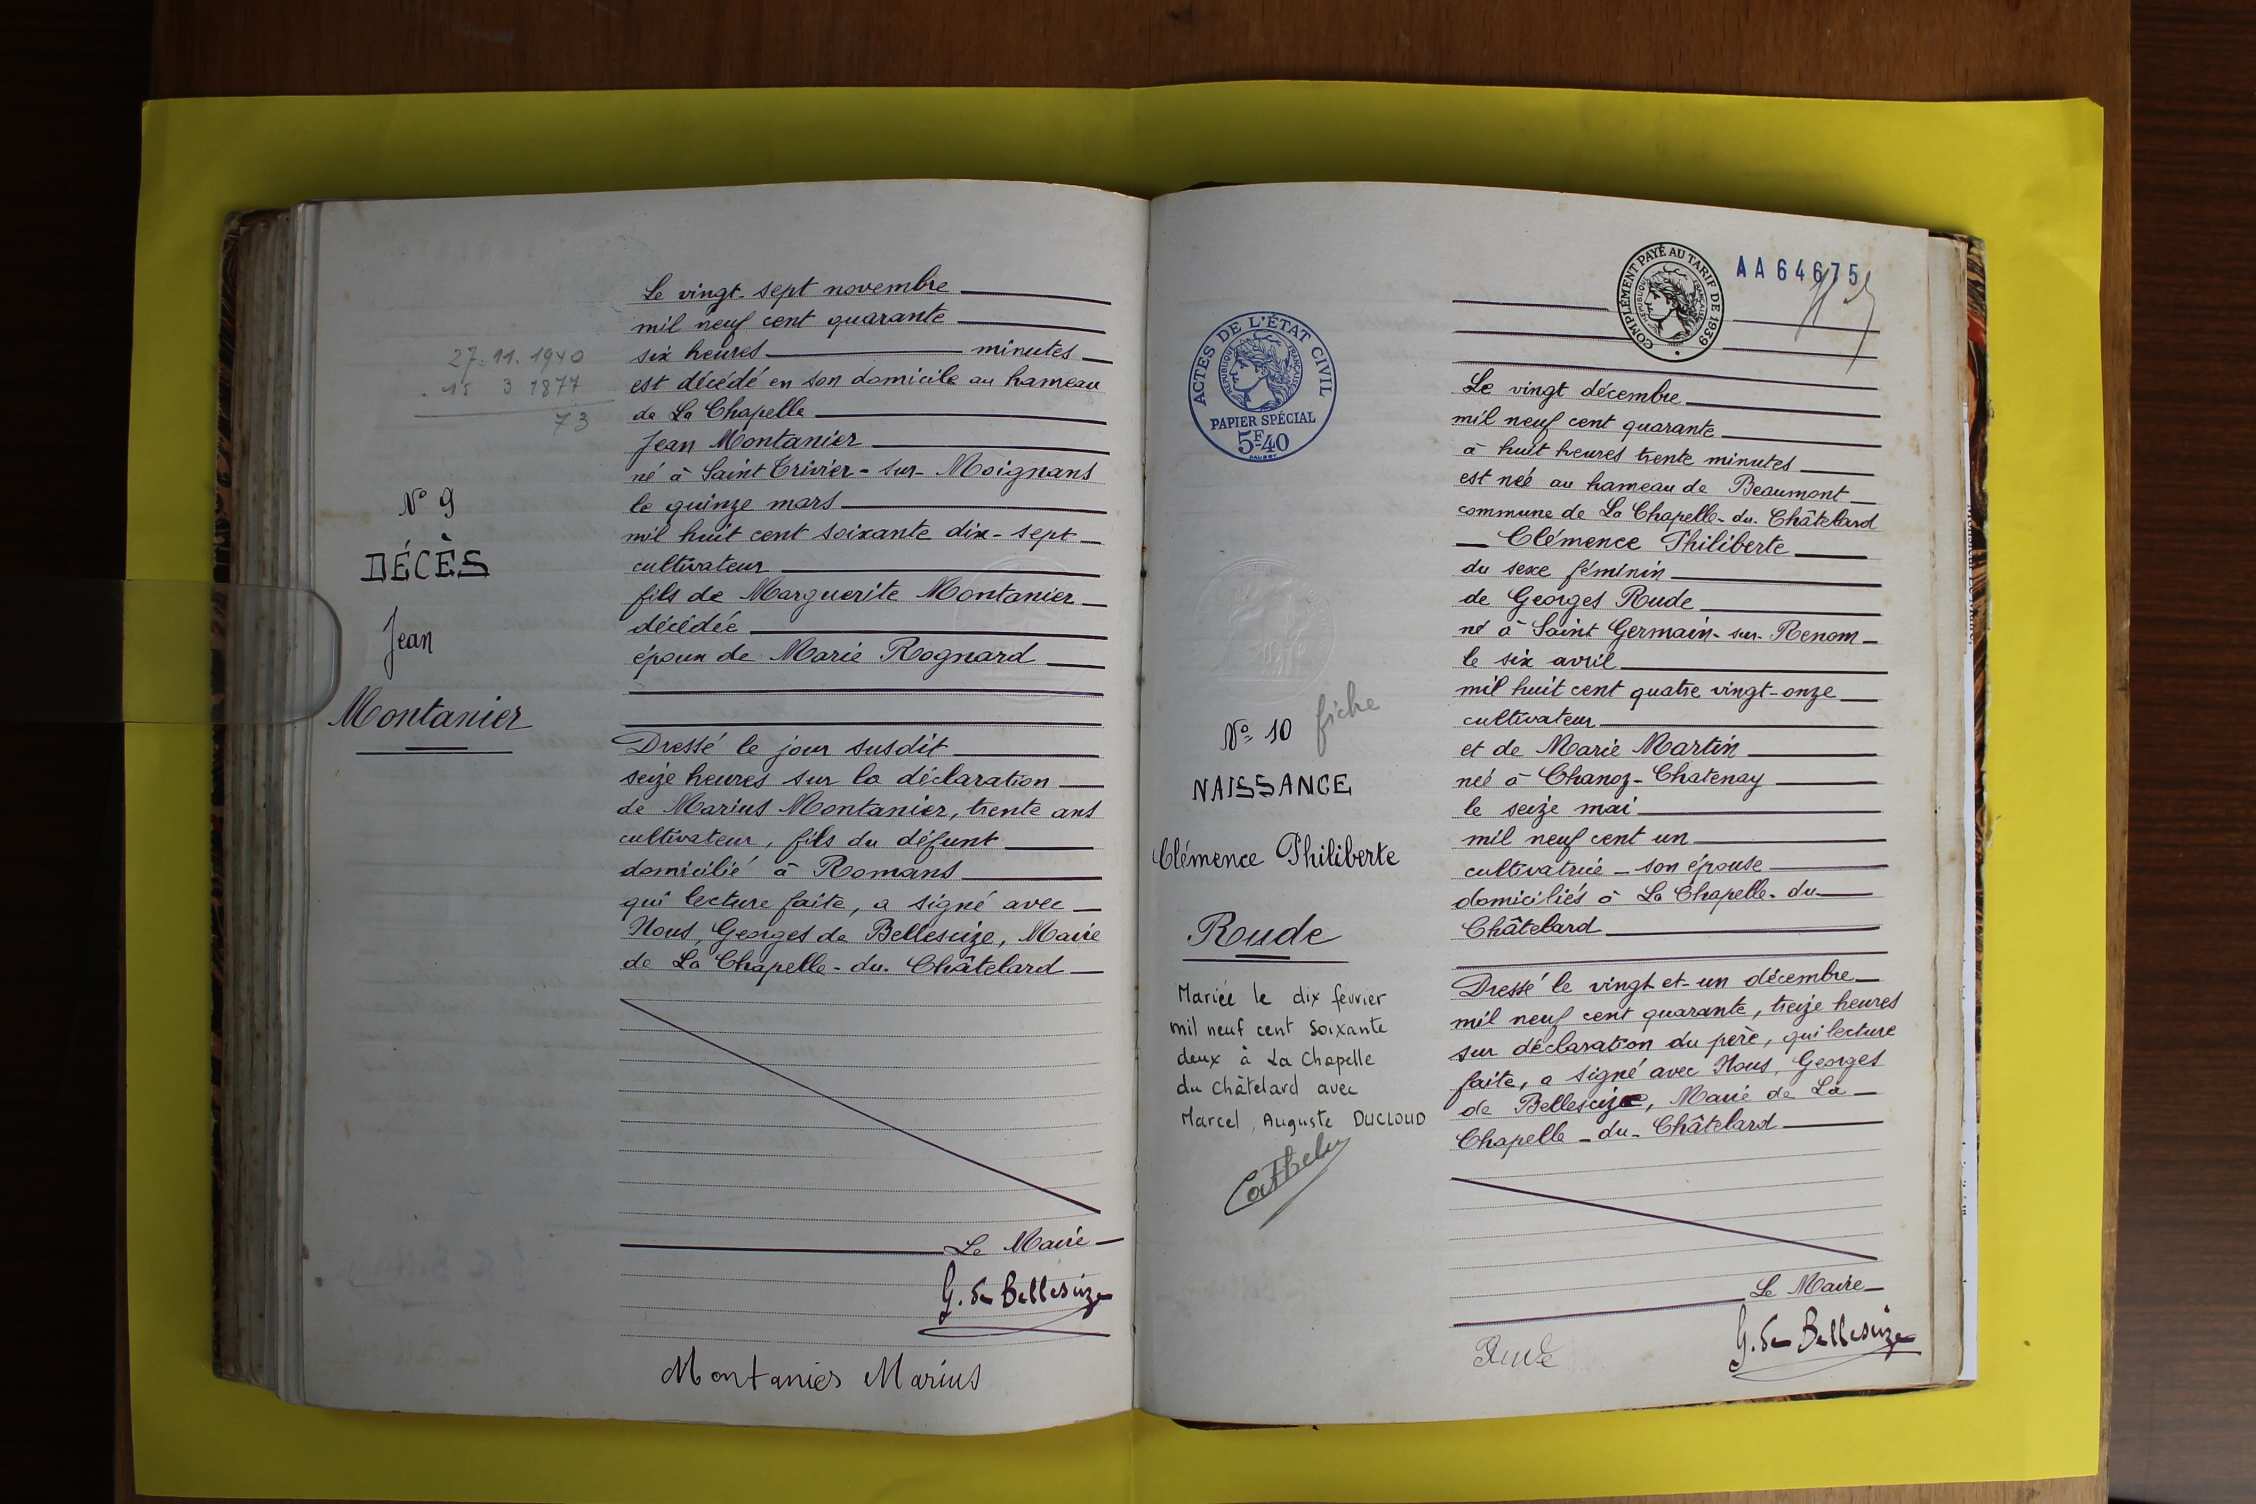 27.11.1940
15 3 1877
73
N° 9
DÉCÈS
Jean
Montanier
Le vingt-sept novembre
mil neuf cent quarante
six heures minutes
est décédé en son domicile au hameau
de La Chapelle
Jean Montanier
né à Saint Trivier-sur-Moignans
le quinze mars
mil huit cent soixante dix-sept
cultivateur
fils de Marguerite Montanier
décédée
époux de Marie Rognard
Dressé le jour susdit
seize heures sur la déclaration
de Marius Montanier, trente ans
cultivateur, fils du défunt
domicilié à Romans
qui lecture faite, a signé avec
Nous, Georges de Bellescize, Maire
de La Chapelle-du-Châtelard
Le Maire
G. de Bellescize
Montanier Marius
ACTES DE L'ÉTAT CIVIL
RÉPUBLIQUE FRANÇAISE
PAPIER SPÉCIAL
5F40
N° 10 fiche
NAISSANCE
Clémence Philiberte
Rude
Mariée le dix février
mil neuf cent soixante
deux à La Chapelle
du Châtelard avec
Marcel, Auguste DUCLOUD
COMPLÉMENT PAYÉ AU TARIF DE 1939
RÉPUBLIQUE FRANÇAISE
AA64675
Le vingt décembre
mil neuf cent quarante
à huit heures trente minutes
est née au hameau de Beaumont
commune de La Chapelle-du-Châtelard
Clémence Philiberte
du sexe féminin
de Georges Rude
né à Saint Germain-sur-Renom
le six avril
mil huit cent quatre vingt-onze
cultivateur
et de Marie Martin
née à Chanoz-Chatenay
le seize mai
mil neuf cent un
cultivatrice - son épouse
domiciliés à La Chapelle-du-
Châtelard
Dressé le vingt et-un décembre
mil neuf cent quarante, treize heures
sur déclaration du père, qui lecture
faite, a signé avec Nous, Georges
de Bellescize, Maire de La
Chapelle-du-Châtelard
Le Maire
G. de Bellescize
Rude